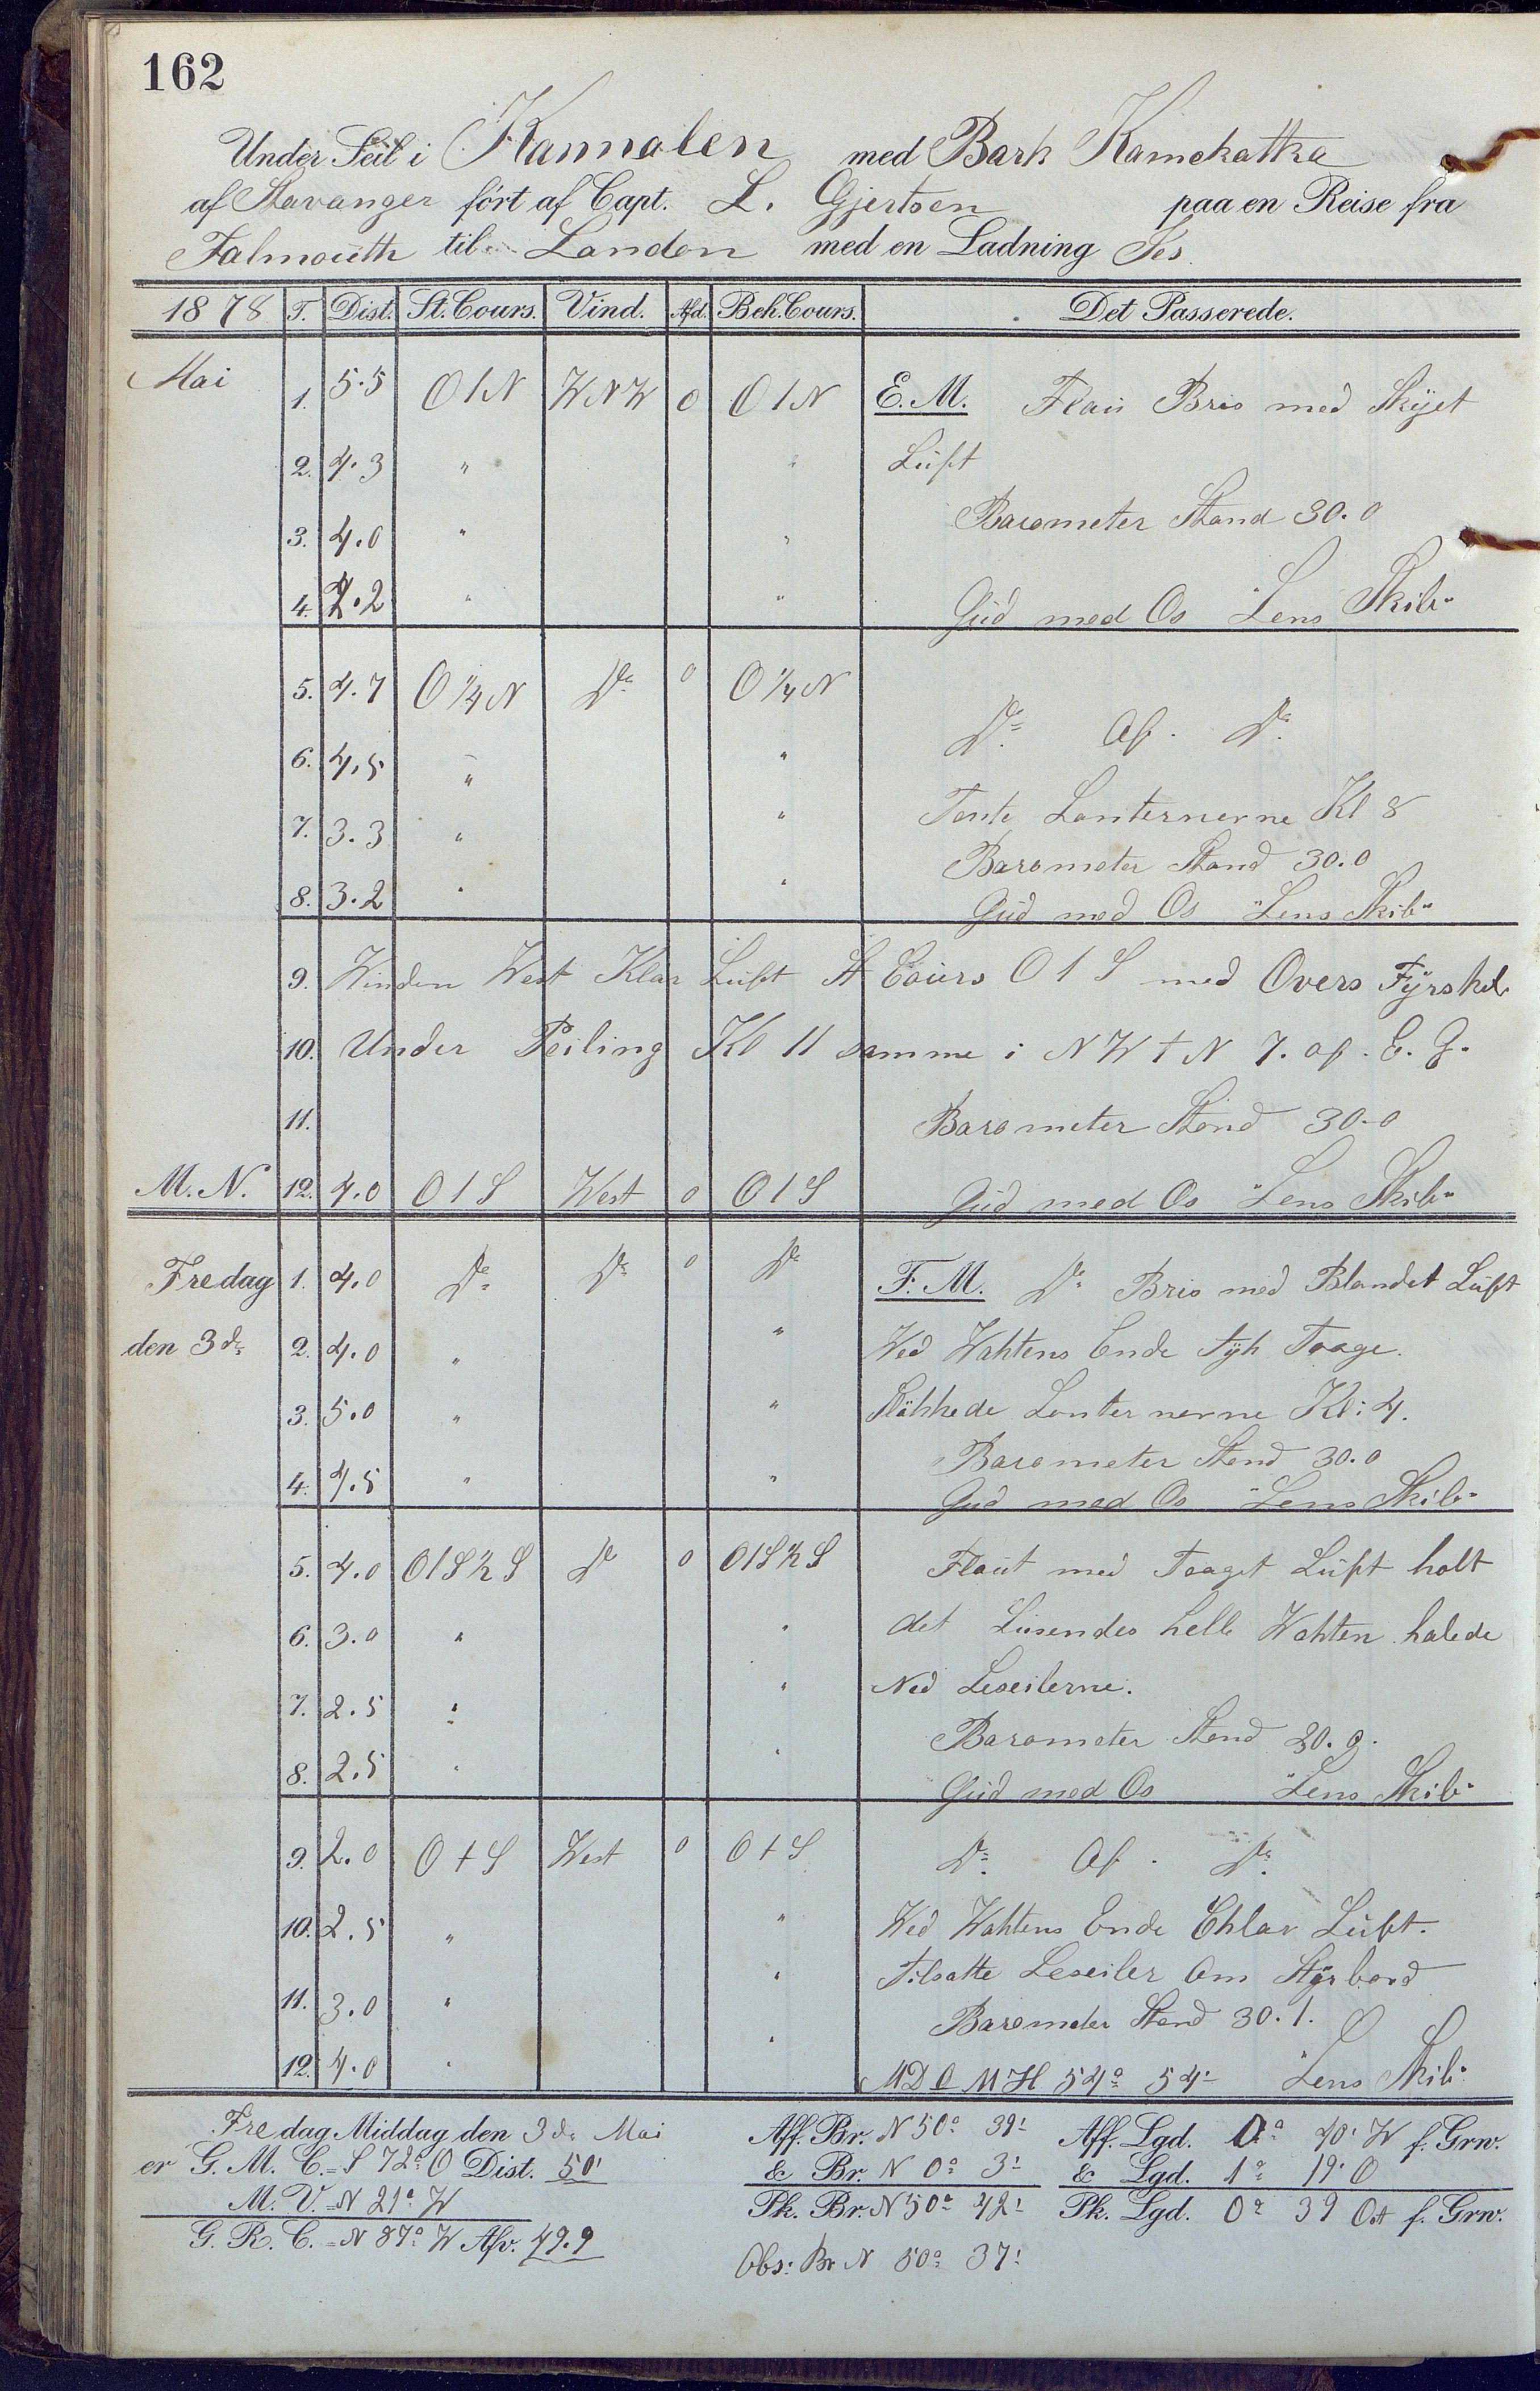 162
Under Seil i Kannalen med Bark Kamckattka
af Stavanger ført af Capt. L. Gjertsen paa en Reise fra
Falmouth til London med en Ladning Ies
1878 T. Dist. St. Cours. Vind. Afd. Beh. Cours. Det Passerede.
Mai 1. 5.5 O1N WNW 0 O1N E.M. Flaü Bris med Skÿet
2. 4.3 " " Lüft
Barometer Stand 30.0
3. 4.0 " "
4. 2.2 " " Güd med Os "Lens Skib"
5. 4.7 O¼N Do 0 O¼N
Do Af. Do
6. 4.5 " "
Tente Lanternerne Kl 8
7. 3.3 " "
Barometer Stand 30.0
8. 3.2 " " Güd med Os "Lens Skib"
9. Winden West Klar Lüft St Coürs O1S med Overs Fÿrskib
10. Under Peiling Kl 11 samme i NWtN 7. af. E. G.
11. Barometer Stand 30.0
M.N. 12. 4.0 O1S West 0 O1S Güd med Os "Lens Skib"
Fredag 1. 4.0 Do Do 0 Do F.M. Do Bris med Blandet Lüft
den 3de 2. 4.0 " " Wed Wahtens Ende Tÿk Taage.
3. 5.0 " " Slökkede Lanternerne Kl: 4.
Barometer Stand 30.0
4. 4.5 " " Güd med Os "Lens Skib"
5. 4.0 O1S½S Do 0 O1S½S Flaüt med Taaget Lüft holt
6. 3.0 " " det Lüsendes helle Wahten halede
7. 2.5 " " Ned Leseilerne.
Barometer Stand 30.0.
8. 2.5 " " Güd med Os "Lens Skib"
9. 2.0 OtS West 0 OtS Do Af. Do
10. 2.5 " " Wed Wahtens Ende Chlar Lüft.
11. 3.0 " " Tilsatte Leseiler Om Stÿrbord
Barometer Stand 30.1.
12. 4.0 " " MD O M H 54° 54' "Lens Skib"
Fredag Middag den 3de Mai Aff. Br. N 50° 39' Aff. Lgd. 0° 40' W f. Grw.
er G. M. C. = S 72° O Dist. 50' & Br. N 0° 3' & Lgd. 1° 19' O
M. V. = N 21° W Pk. Br. N 50° 42' Pk. Lgd. 0° 39 Ost f. Grw.
G. R. C. = N 87° W Afv. 49.9
Obs: Br N 50° 37'